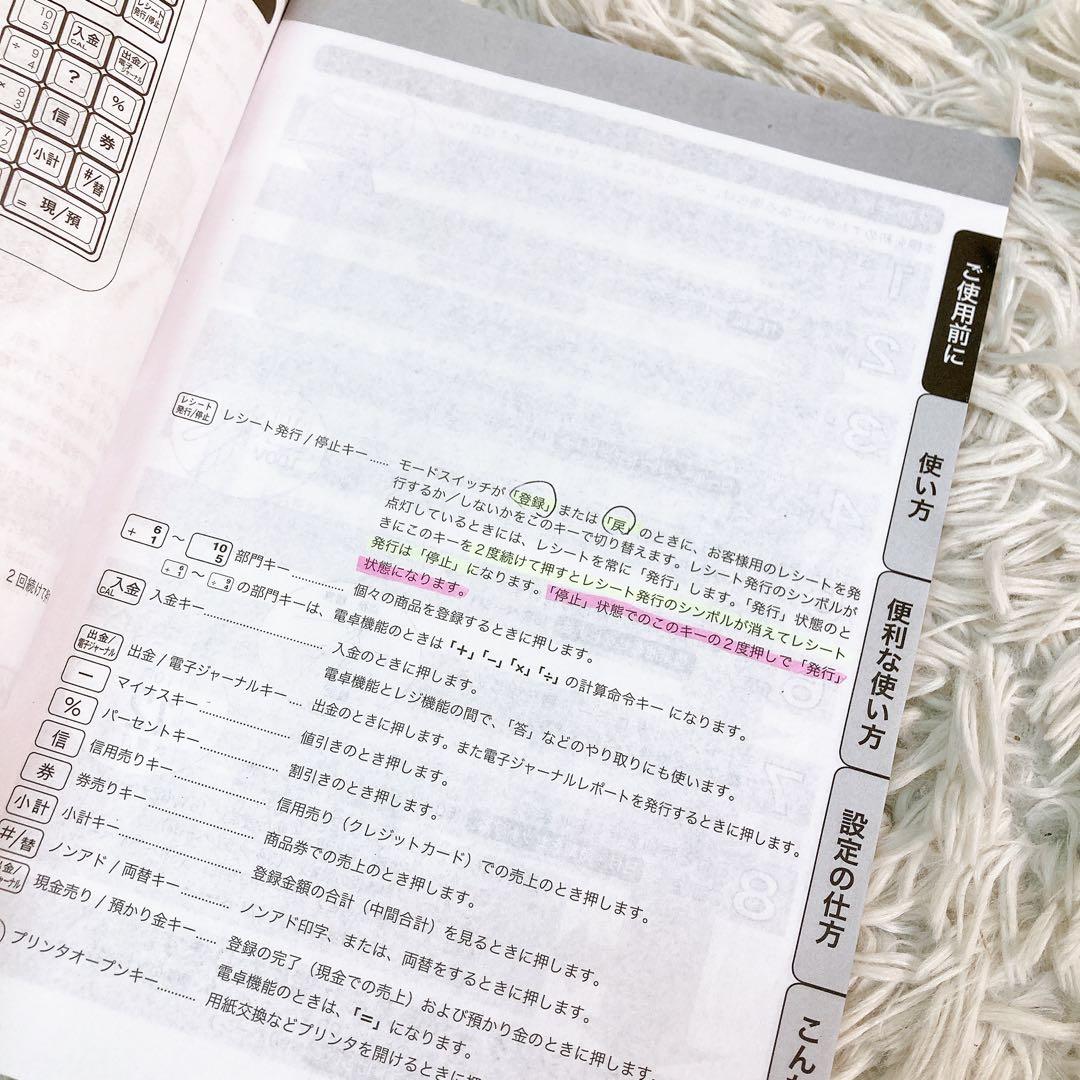 レシート
発行/停止
10
5
入金
CAL
出金/
電子
ジャーナル
÷ 9
4
?
%
× 8
3
信
券
7
2
小計
#/替
= 現/預
2回続けて
ご使用前に
使い方
便利な使い方
設定の仕方
こん
レシート
発行/停止
レシート発行/停止キー……
モードスイッチが「登録」または「戻」のときに、お客様用のレシートを発
行するか/しないかをこのキーで切り替えます。レシート発行のシンボルが
点灯しているときには、レシートを常に「発行」します。「発行」状態のと
きにこのキーを2度続けて押すとレシート発行のシンボルが消えてレシート
発行は「停止」になります。「停止」状態でのこのキーの2度押しで「発行」
状態になります。
+ 6
1 ～ 10
5 部門キー……………
個々の商品を登録するときに押します。
+ 6
1 ～ ÷ 9
4 の部門キーは、電卓機能のときは「+」「−」「×」「÷」の計算命令キー になります。
入金
CAL
入金キー……………………
入金のときに押します。
電卓機能とレジ機能の間で、「答」などのやり取りにも使います。
出金/
電子ジャーナル
出金/電子ジャーナルキー……
出金のときに押します。また電子ジャーナルレポートを発行するときに押します。
−
マイナスキー………………
値引きのとき押します。
%
パーセントキー……………
割引きのとき押します。
信
信用売りキー………………
信用売り（クレジットカード）での売上のとき押します。
券
券売りキー…………………
商品券での売上のとき押します。
小計
小計キー……………………
登録金額の合計（中間合計）を見るときに押します。
#/替
ノンアド/両替キー…………
ノンアド印字、または、両替をするときに押します。
出金/
ジャーナル
現金売り/預かり金キー……
登録の完了（現金での売上）および預かり金のときに押します。
電卓機能のときは、「=」になります。
プリンタオープンキー………
用紙交換などプリンタを開けるときに